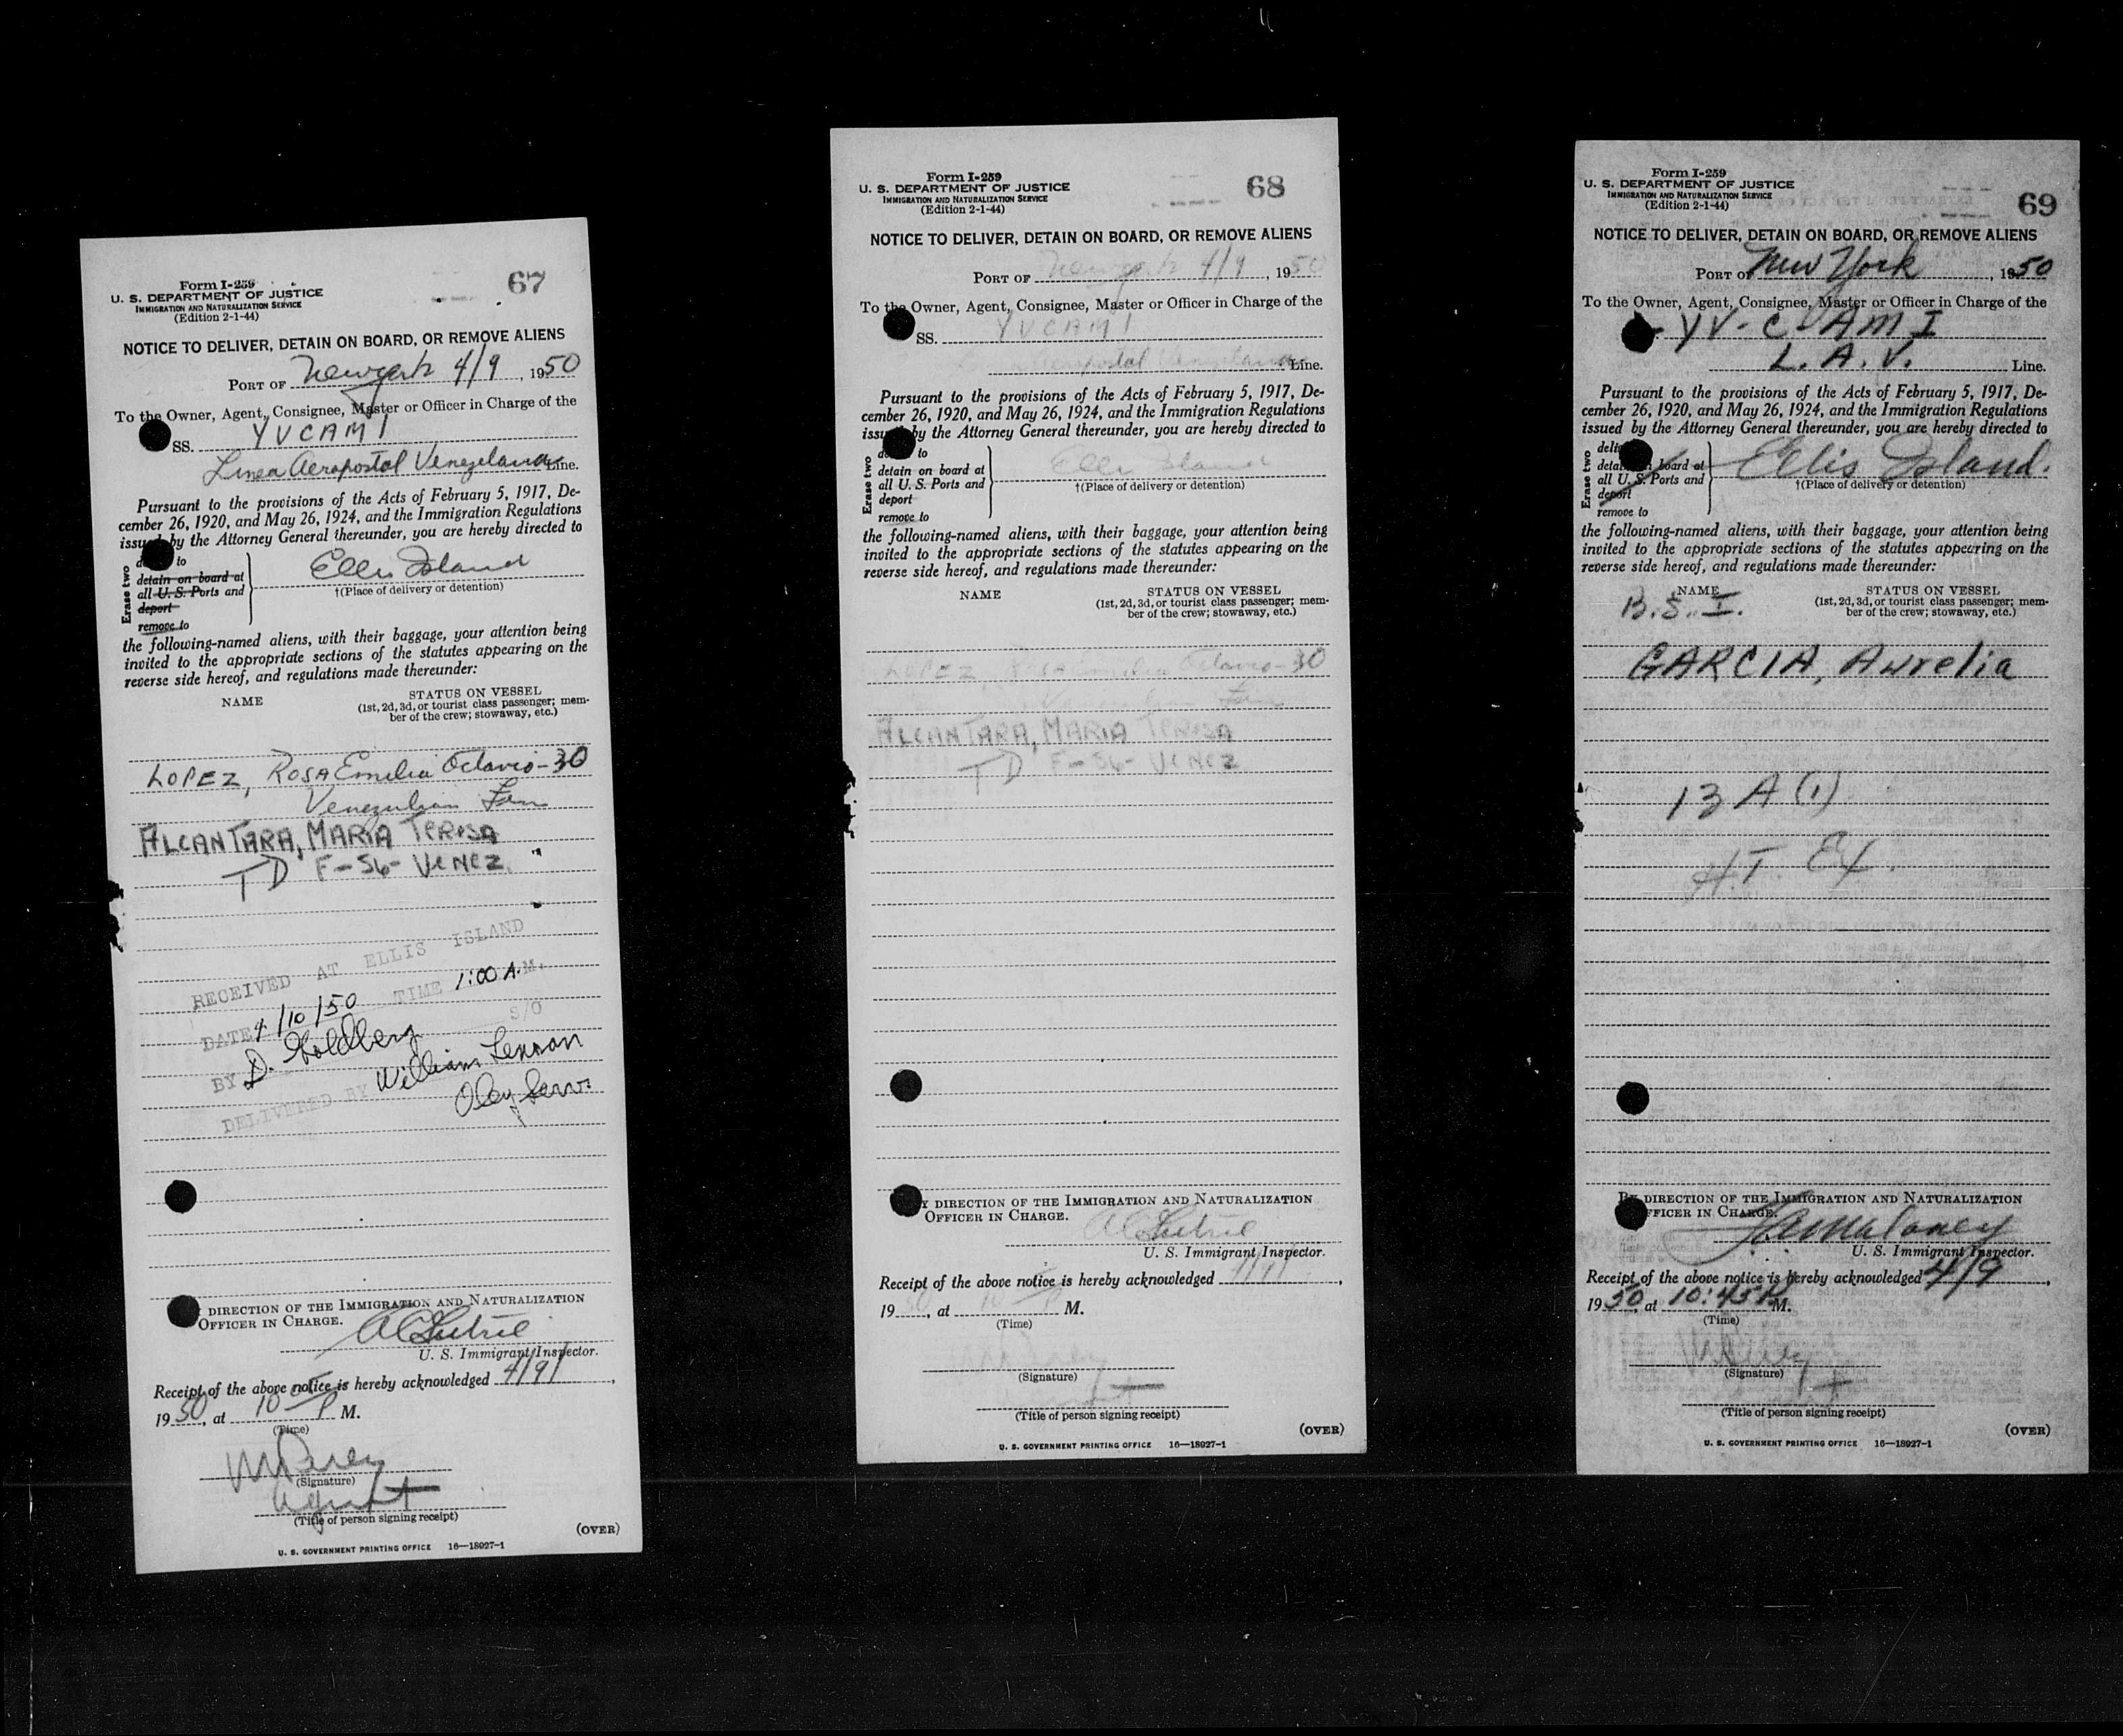 Form I-259
U. S. DEPARTMENT OF JUSTICE
IMMIGRATION AND NATURALIZATION SERVICE
(Edition 2-1-44)
67
NOTICE TO DELIVER, DETAIN ON BOARD, OR REMOVE ALIENS
PORT OF New York 4/9, 1950
To the Owner, Agent, Consignee, Master or Officer in Charge of the
SS. YVCAMI
Linea Aeropostal Venezelana Line.
Pursuant to the provisions of the Acts of February 5, 1917, De-
cember 26, 1920, and May 26, 1924, and the Immigration Regulations
issued by the Attorney General thereunder, you are hereby directed to
Erase two
to
detain on board at
all U. S. Ports and
deport
remove to
Ellis Island
†(Place of delivery or detention)
the following-named aliens, with their baggage, your attention being
invited to the appropriate sections of the statutes appearing on the
reverse side hereof, and regulations made thereunder:
NAME
STATUS ON VESSEL
(1st, 2d, 3d, or tourist class passenger; mem-
ber of the crew; stowaway, etc.)
LOPEZ, ROSA Emilia Octavio-30
Venezulian Fem
ALCANTARA, MARIA TERESA
TD F-56-VENEZ.
RECEIVED AT ELLIS ISLAND
DATE 4/10/50 TIME 1:00 A.M.
BY D. Goldberg S/O
DELIVERED BY William Lennon
DIRECTION OF THE IMMIGRATION AND NATURALIZATION
OFFICER IN CHARGE.
U. S. Immigrant Inspector.
Receipt of the above notice is hereby acknowledged 4/9/,
1950, at 10 P M.
(Time)
(Signature)
Agent
(Title of person signing receipt)
(OVER)
U. S. GOVERNMENT PRINTING OFFICE 16—18927-1
Form I-259
U. S. DEPARTMENT OF JUSTICE
IMMIGRATION AND NATURALIZATION SERVICE
(Edition 2-1-44)
68
NOTICE TO DELIVER, DETAIN ON BOARD, OR REMOVE ALIENS
PORT OF New York 4/9, 1950
To the Owner, Agent, Consignee, Master or Officer in Charge of the
SS. YVCAMI
Aeropostal Venezelana Line.
Pursuant to the provisions of the Acts of February 5, 1917, De-
cember 26, 1920, and May 26, 1924, and the Immigration Regulations
issued by the Attorney General thereunder, you are hereby directed to
Erase two
to
detain on board at
all U. S. Ports and
deport
remove to
Ellis Island
†(Place of delivery or detention)
the following-named aliens, with their baggage, your attention being
invited to the appropriate sections of the statutes appearing on the
reverse side hereof, and regulations made thereunder:
NAME
STATUS ON VESSEL
(1st, 2d, 3d, or tourist class passenger; mem-
ber of the crew; stowaway, etc.)
LOPEZ, ROSA Emilia Octavio-30
Venezulian Fem
ALCANTARA, MARIA TERESA
TD F-56-VENEZ
BY DIRECTION OF THE IMMIGRATION AND NATURALIZATION
OFFICER IN CHARGE.
U. S. Immigrant Inspector.
Receipt of the above notice is hereby acknowledged 4/9/,
1950, at 10 P M.
(Time)
(Signature)
(Title of person signing receipt)
(OVER)
U. S. GOVERNMENT PRINTING OFFICE 16—18927-1
Form I-259
U. S. DEPARTMENT OF JUSTICE
IMMIGRATION AND NATURALIZATION SERVICE
(Edition 2-1-44)
69
NOTICE TO DELIVER, DETAIN ON BOARD, OR REMOVE ALIENS
PORT OF New York, 1950
To the Owner, Agent, Consignee, Master or Officer in Charge of the
YV-C-AMI
L.A.V. Line.
Pursuant to the provisions of the Acts of February 5, 1917, De-
cember 26, 1920, and May 26, 1924, and the Immigration Regulations
issued by the Attorney General thereunder, you are hereby directed to
Erase two
detain on board at
all U. S. Ports and
deport
remove to
Ellis Island.
†(Place of delivery or detention)
the following-named aliens, with their baggage, your attention being
invited to the appropriate sections of the statutes appearing on the
reverse side hereof, and regulations made thereunder:
NAME
STATUS ON VESSEL
(1st, 2d, 3d, or tourist class passenger; mem-
ber of the crew; stowaway, etc.)
B.S.I.
GARCIA, Aurelia
13 A (1)
H.T. Ex.
BY DIRECTION OF THE IMMIGRATION AND NATURALIZATION
OFFICER IN CHARGE.
Maloney
U. S. Immigrant Inspector.
Receipt of the above notice is hereby acknowledged 4/9,
1950, at 10:45 P M.
(Time)
(Signature)
(Title of person signing receipt)
(OVER)
U. S. GOVERNMENT PRINTING OFFICE 16—18927-1